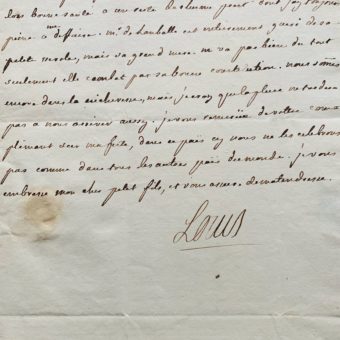 lons bonne santé a un reste de rhume peut
peine a me d'usèse. mr de Lamballe est entierement gueri de sa
petit verole, mais sa grand mere ne va pas bien du tout
seulement elle combat par sa bonne constitution. nous sommes
encore dans la secheresse, mais j'espere que la pluie ne tardera
pas a nous arriver aussy. je vous remercie de vostre com
pliment sur ma feste, dans ce païs cy nous ne les celebrons
pas comme dans tous les autres païs du monde. je vous
embrasse mon cher petit fils, et vous assure de ma tendresse.
Louis